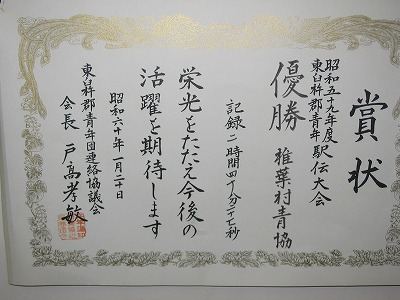 賞状
昭和五十九年度
東臼杵郡青年駅伝大会
優勝 椎葉村青協
記録 二時間四十八分二十七秒
栄光をたたえ今後の
活躍を期待します
昭和六十年一月二十日
東臼杵郡青年団連絡協議会
会長 戸高孝敏